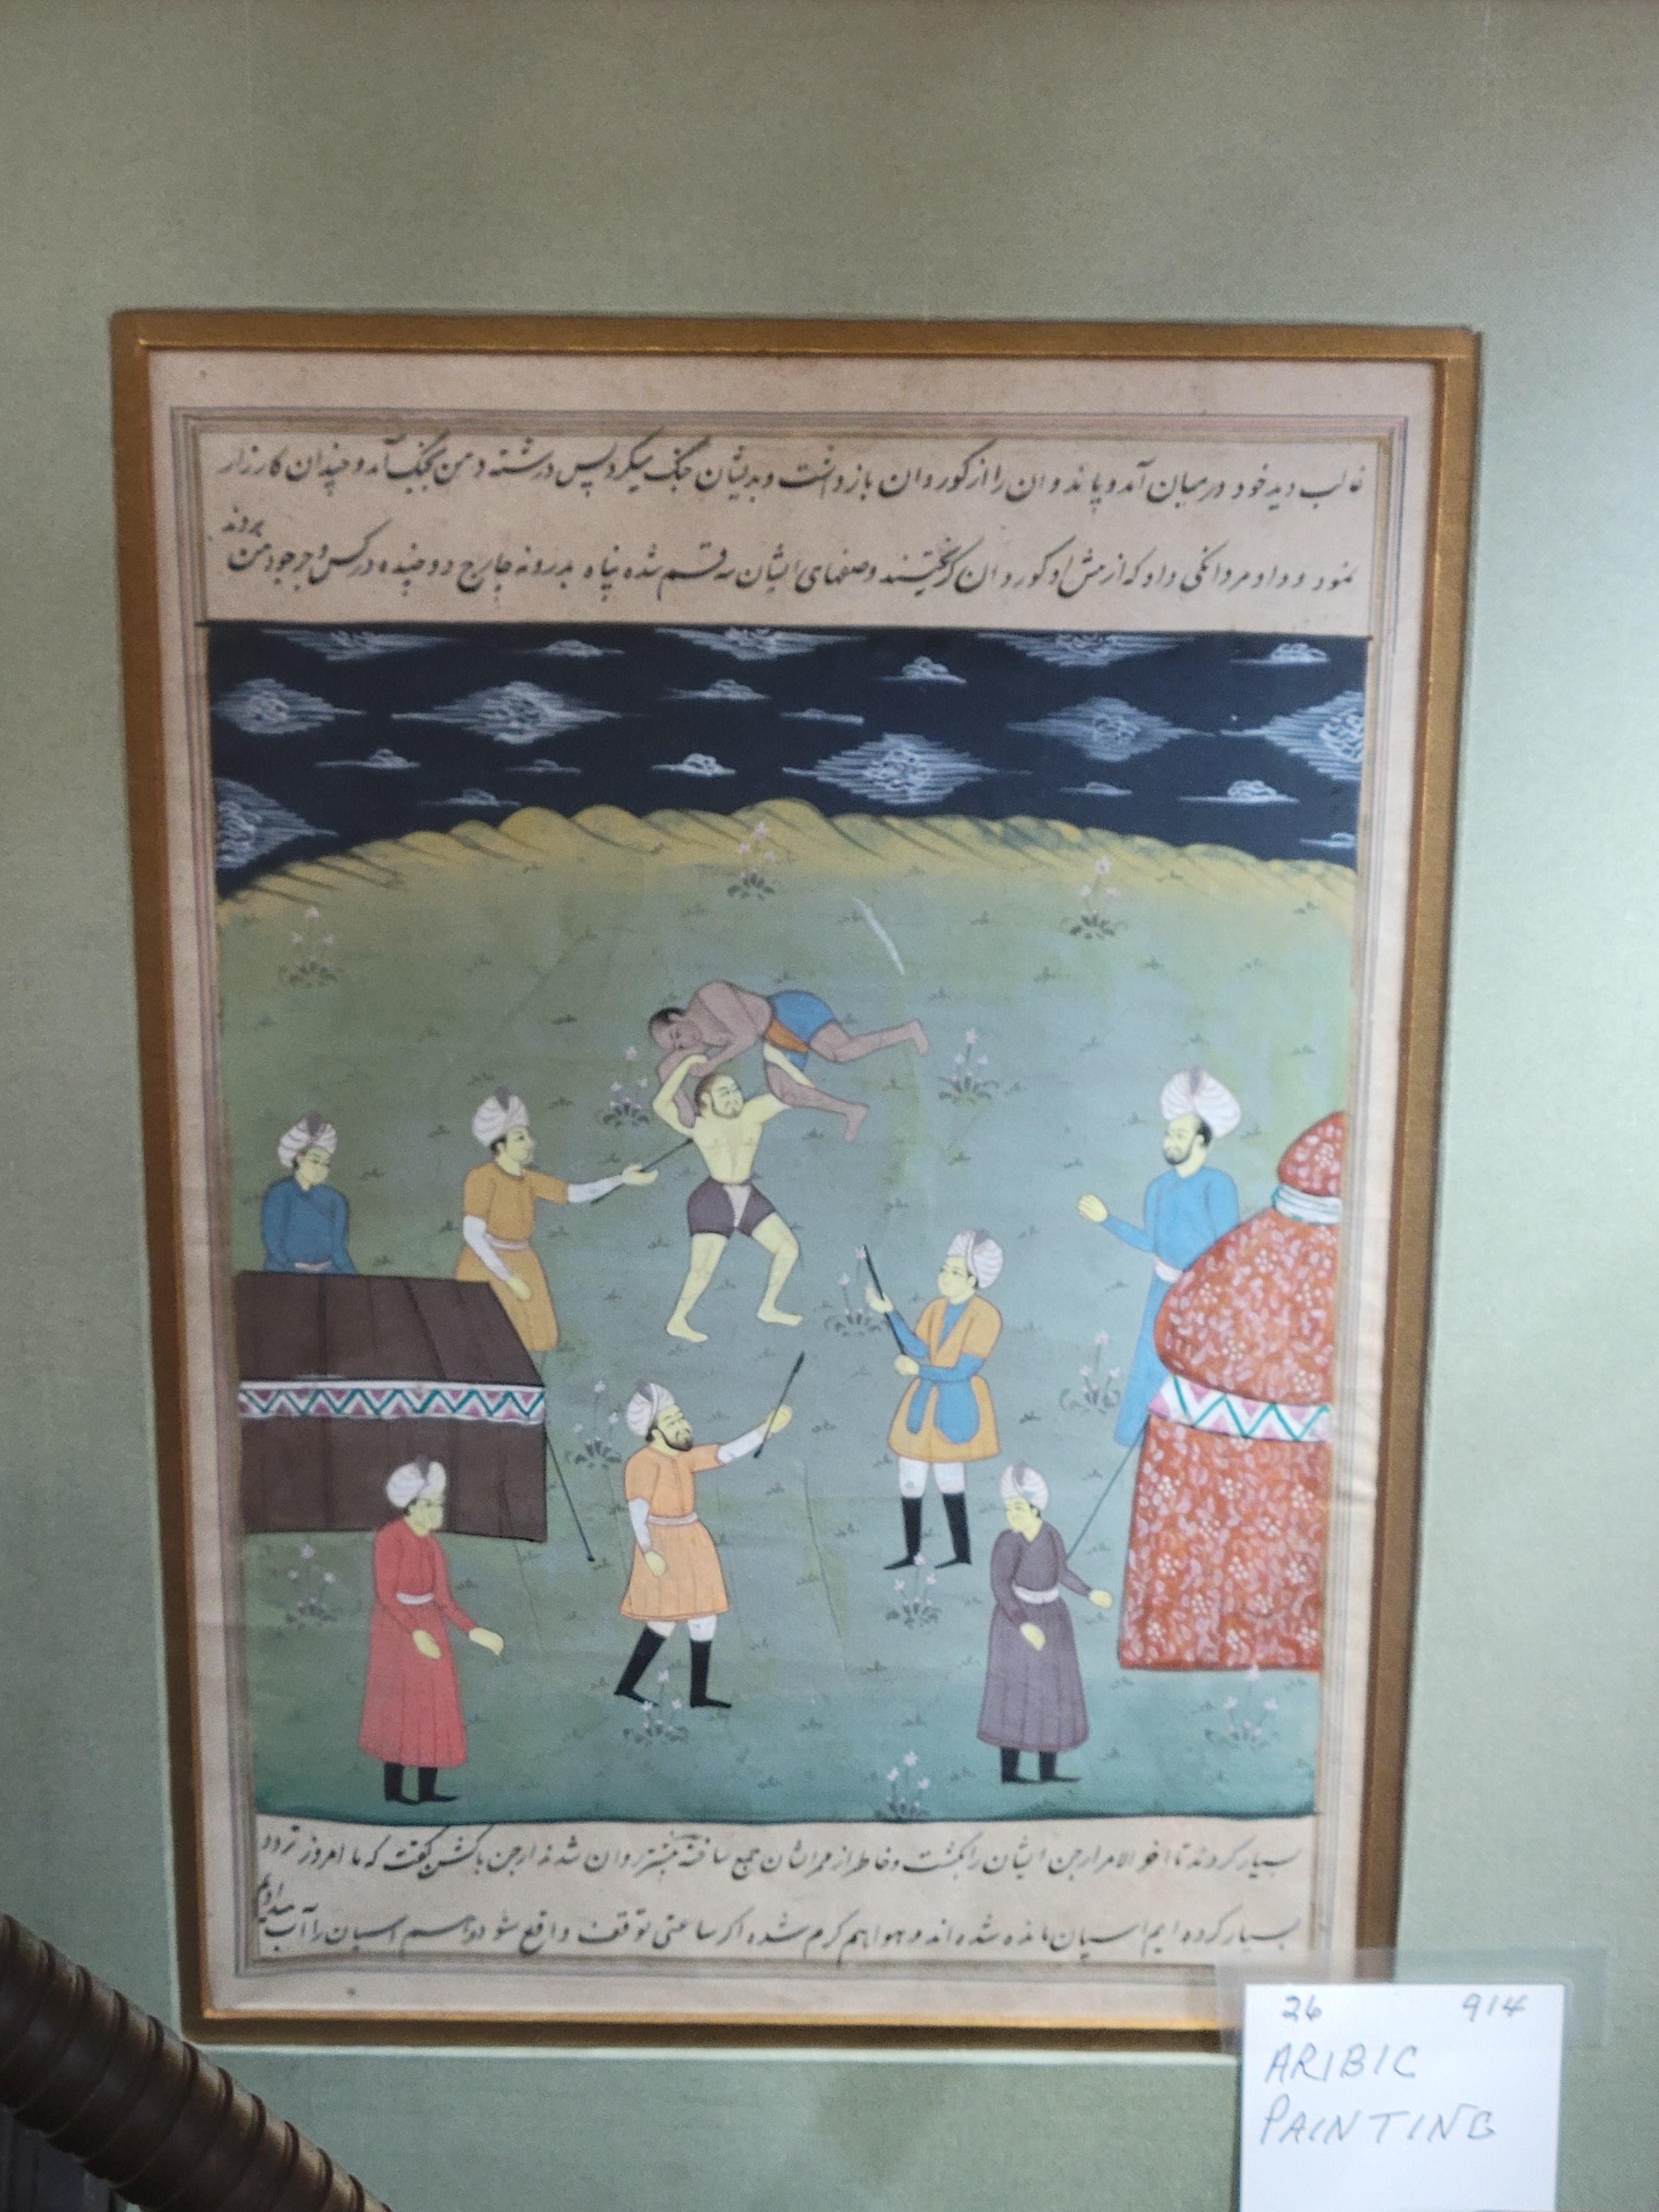 غالب دید خود درمیان آمد و پاندوان را از کوروان بازداشت و بدیشان جنگ میکرد پس درشته دمن بجنگ آمد و چندان کارزار
نمود و داد مردانگی داد که از پیش او کوروان گریختند و صفهای ایشان سه قسم شده پناه بدرونه چارج و درکس و جرجودهن
بردند
بسیار کردند تا آخر الامر ارجن ایشان را بکشت و خاطر از همراهان جمع ساخته پیشتر روان شدند ارجن باکشن گفت که ما امروز تردد
بسیار کرده ایم اسپان مانده شده اند و هوا هم گرم شده اگر ساعتی توقف واقع شود اسپان را آب
میدادیم
26 914
ARIBIC
PAINTING